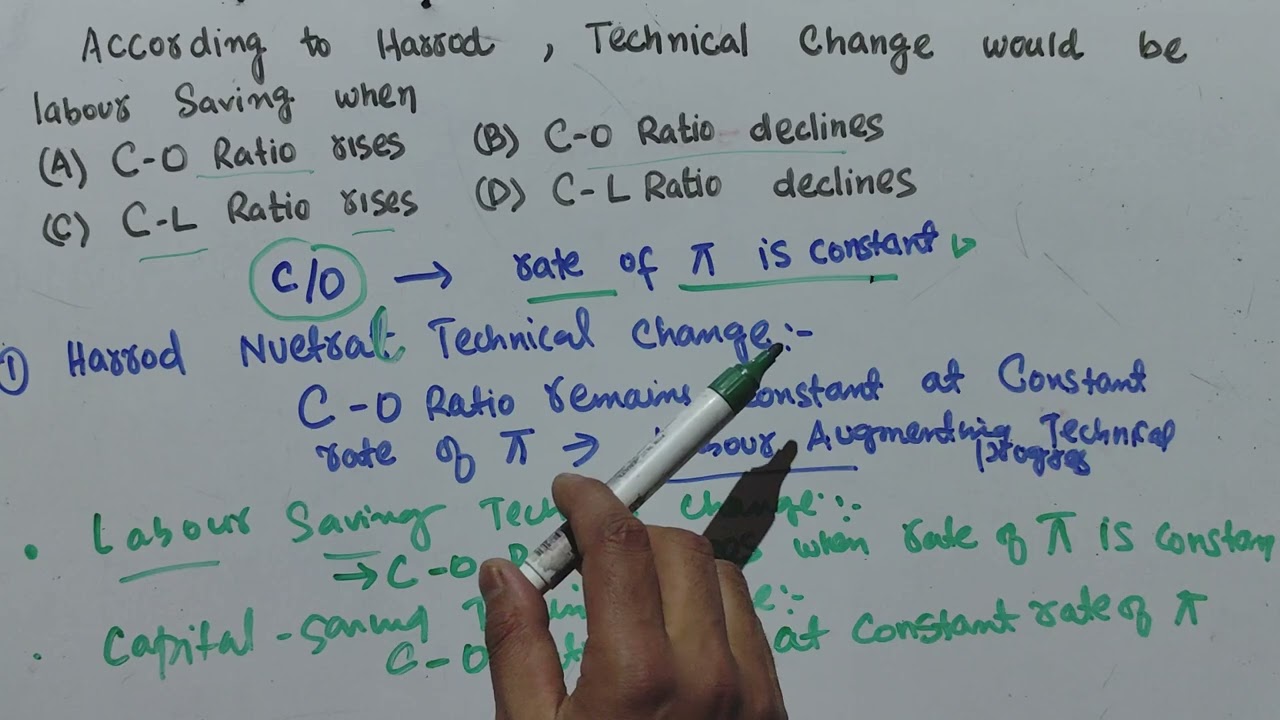 According to Harrod, Technical Change would be
labour Saving when
(A) C-O Ratio rises (B) C-O Ratio declines
(C) C-L Ratio rises (D) C-L Ratio declines
C/O → rate of π is constant
① Harrod Nuetral Technical Change:-
C-O Ratio remains constant at Constant
rate of π → Labour Augmenting Technical
progres
• Labour Saving Change:-
→ C-O when rate of π is constan
• Capital-saving
C-O at constant rate of π